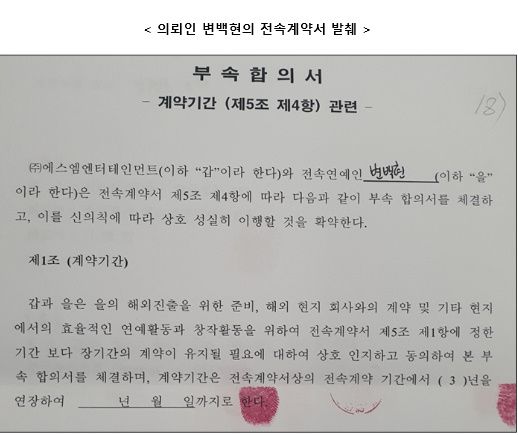 < 의뢰인 변백현의 전속계약서 발췌 >
부 속 합 의 서
- 계약기간 (제5조 제4항) 관련 -
18)
㈜에스엠엔터테인먼트(이하 “갑”이라 한다)와 전속연예인 변백현 (이하 “을”
이라 한다)은 전속계약서 제5조 제4항에 따라 다음과 같이 부속 합의서를 체결하
고, 이를 신의칙에 따라 상호 성실히 이행할 것을 확약한다.
제1조 (계약기간)
갑과 을은 을의 해외진출을 위한 준비, 해외 현지 회사와의 계약 및 기타 현지
에서의 효율적인 연예활동과 창작활동을 위하여 전속계약서 제5조 제1항에 정한
기간 보다 장기간의 계약이 유지될 필요에 대하여 상호 인지하고 동의하여 본 부
속 합의서를 체결하며, 계약기간은 전속계약서상의 전속계약 기간에서 ( 3 )년을
연장하여 ______년 월 일까지로 한다.